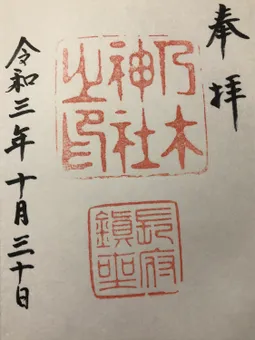 奉拝
乃木
神社
之印
長府
鎮坐
令和三年十月三十日